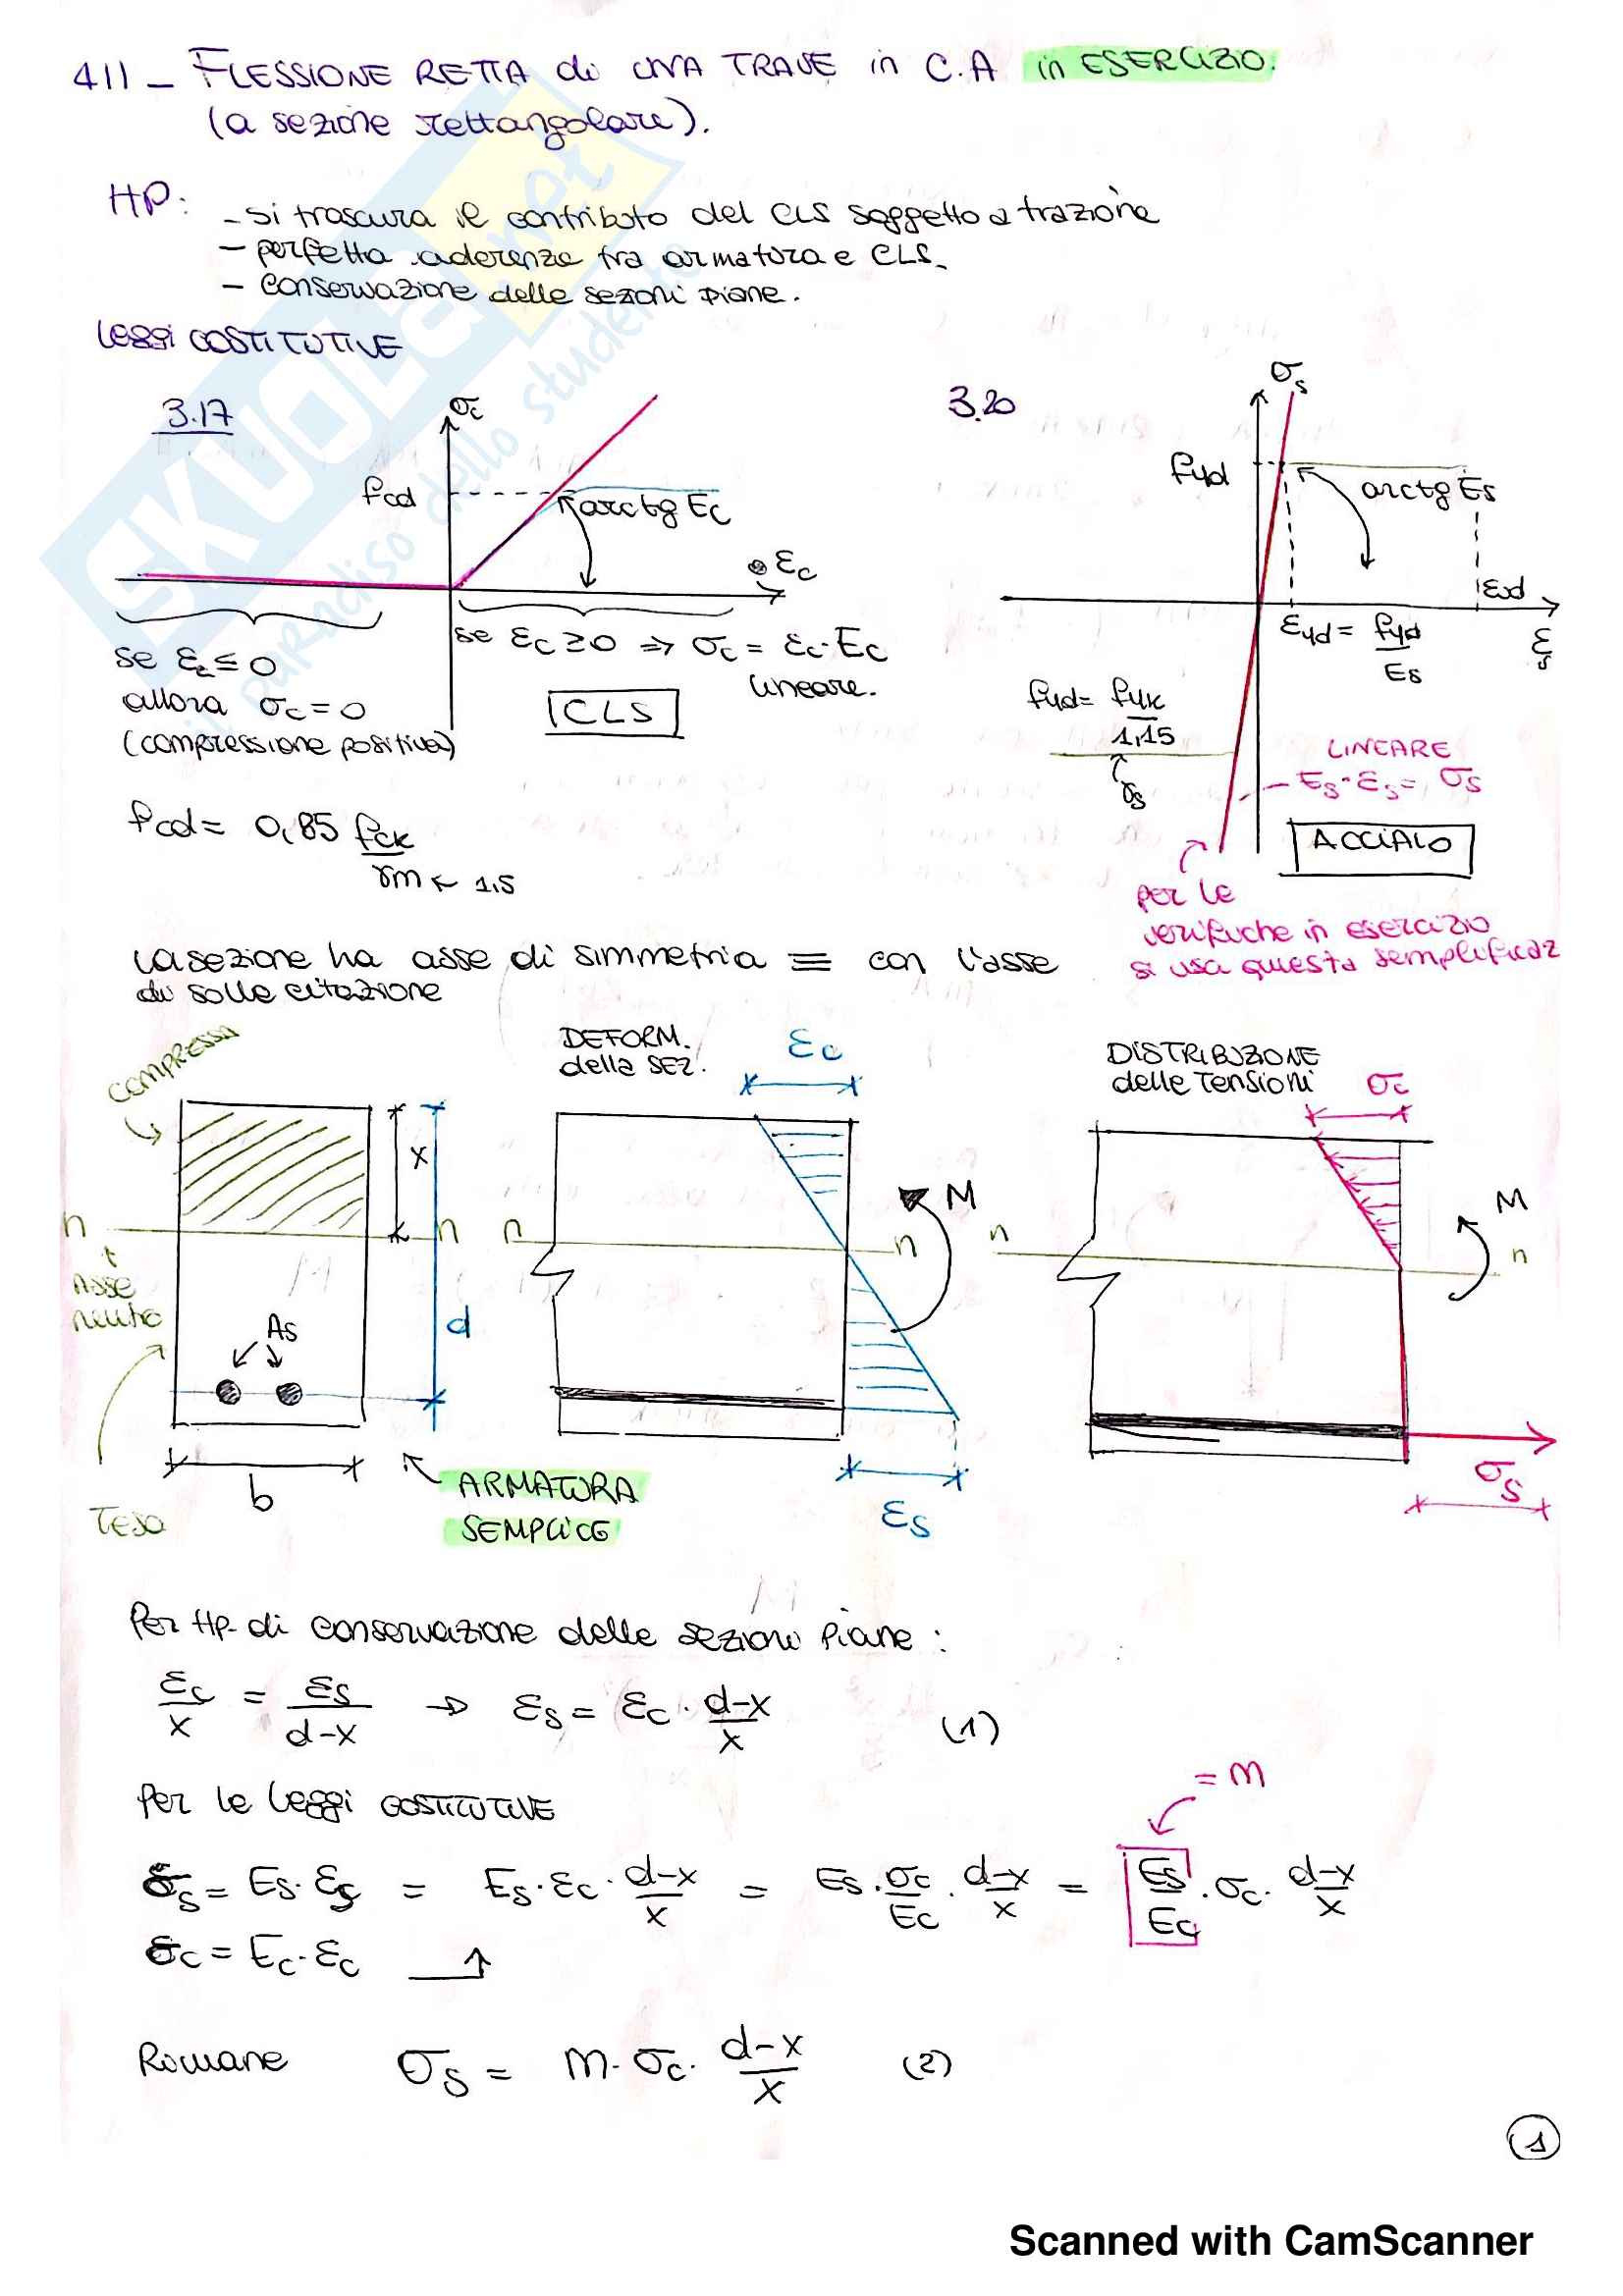 411 - FLESSIONE RETTA di UNA TRAVE in C.A in ESERCIZIO.
(a sezione rettangolare).
HP: - si trascura il contributo del CLS soggetto a trazione
- perfetta aderenza tra armatura e CLS.
- conservazione delle sezioni piane.
LEGGI COSTITUTIVE
3.17
σc
fcd
arctg Ec
εc
se εc ≤ 0
allora σc = 0
(compressione positiva)
se εc ≥ 0 ⇒ σc = εc · Ec
lineare.
CLS
3.20
σs
fyd
arctg Es
εud
εyd = fyd / Es
εs
fyd = fyk / 1,15
γs
LINEARE
Es · εs = σs
ACCIAIO
per le
verifiche in esercizio
si usa questa semplificaz
fcd = 0,85 fck / γm ← 1.5
La sezione ha asse di simmetria ≡ con l'asse
di sollecitazione
COMPRESSA
x
d
n n
Asse
neutro
As
b
Tesa
ARMATURA
SEMPLICE
DEFORM.
della SEZ.
εc
M
n n
εs
DISTRIBUZIONE
delle Tensioni
σc
M
n n
σs
Per Hp. di conservazione delle sezioni piane :
εc / x = εs / d-x → εs = εc · d-x / x (1)
Per le leggi COSTITUTIVE
= m
σs = Es · εs = Es · εc · d-x / x = Es · σc / Ec · d-x / x = Es / Ec · σc · d-x / x
σc = Ec · εc
Rimane σs = m · σc · d-x / x (2)
1
SKUOLA.net
il paradiso dello studente
Scanned with CamScanner